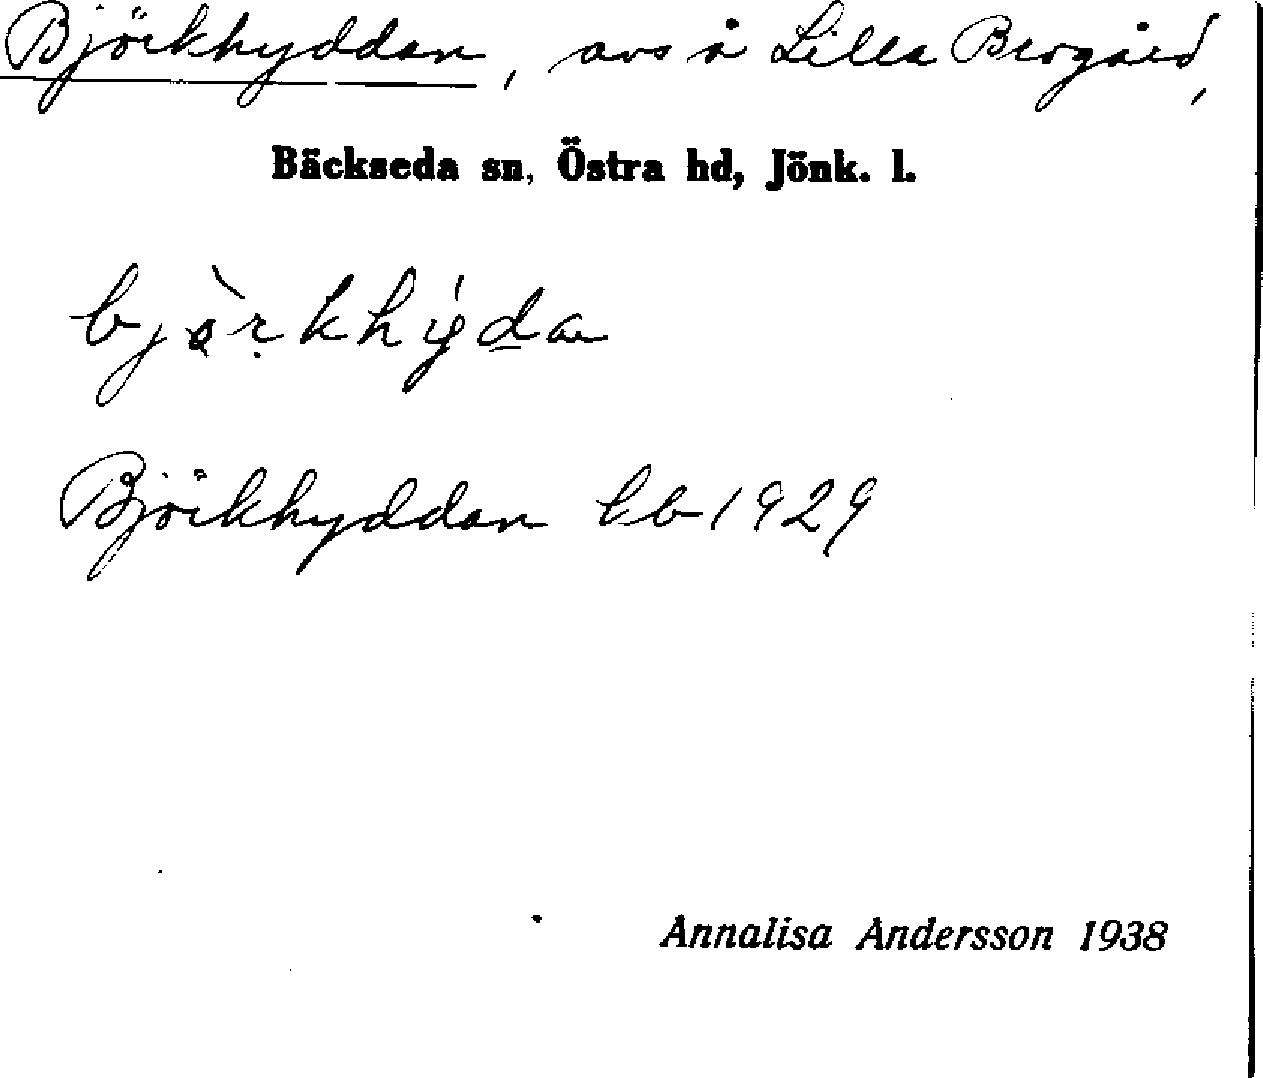 Björkhyddan, avs å Lilla Brogård,
Bäckseda sn, Östra hd, Jönk. l.
Björkhyddan lb 1929
Annalisa Andersson 1938